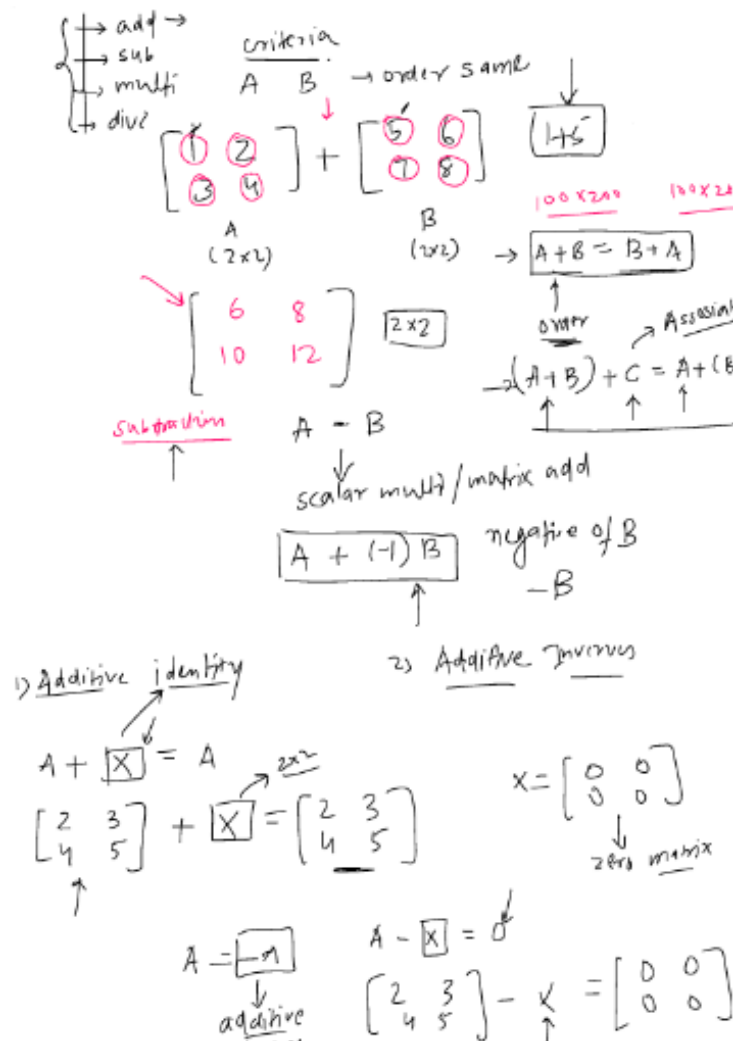 → add →
→ sub
→ multi
→ divi
criteria
A B → order same
[1 2
3 4] + [5 6
7 8]
1+5
A
(2×2)
B
(2×2)
100×200 100×20
→ A+B = B+A
[6 8
10 12] 2×2
order
→ Associa
→ (A+B) + C = A+(B
subtraction A - B
scalar multi/matrix add
A + (-1) B negative of B
-B
1) Additive identity
2) Additive Inverses
A + X = A
[2 3
4 5] + X = [2 3
4 5]
2×2
X = [0 0
0 0]
zero matrix
A = -A
additive
A - X = 0
[2 3
4 5] - X = [0 0
0 0]